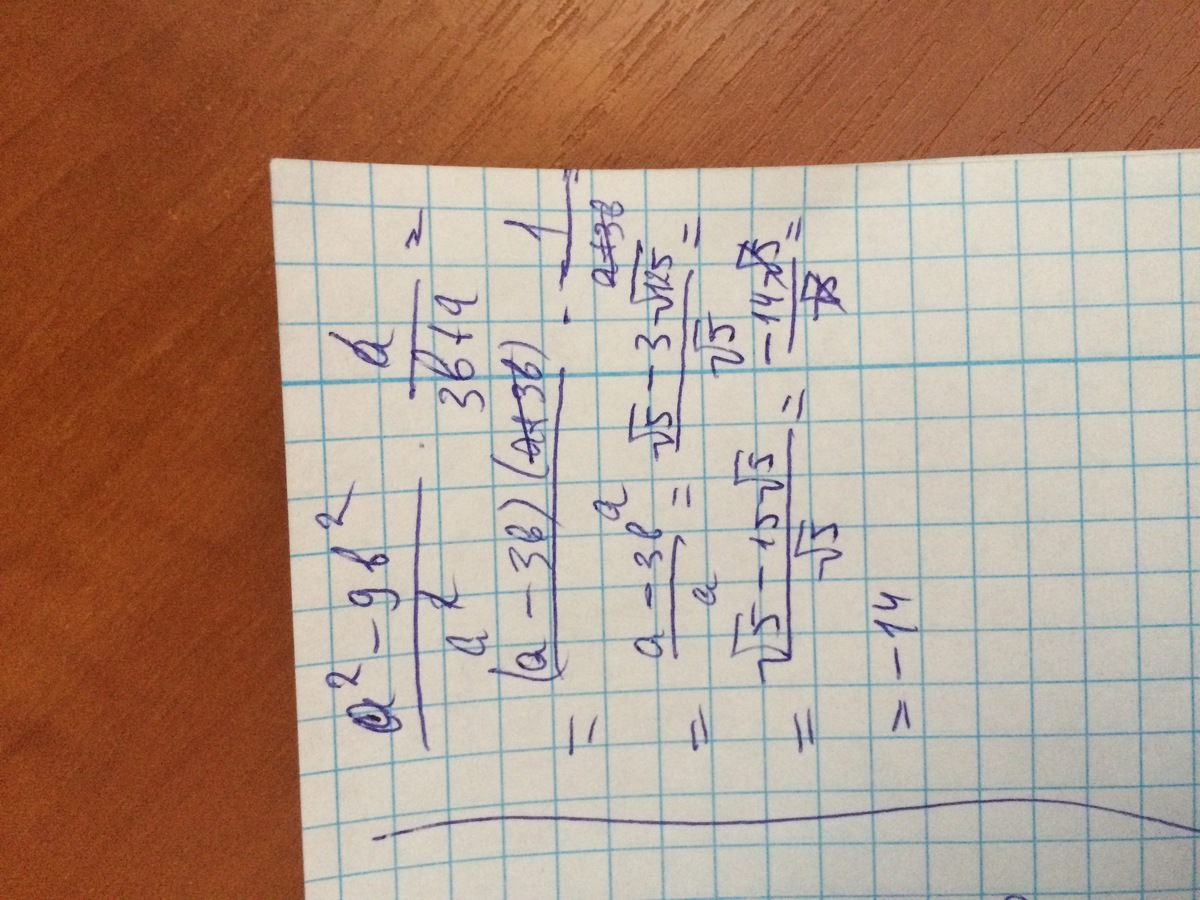 a² - 9b² / a² · a / 3b + a =
= (a - 3b)(a + 3b) / a · 1 / a + 3b =
= a - 3b / a = √5 - 3√125 / √5 =
= √5 - 15√5 / √5 = -14√5 / √5 =
= -14